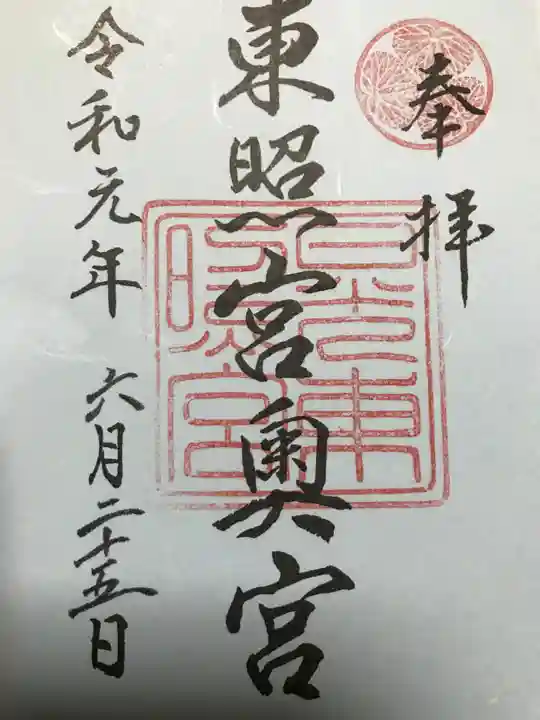 奉拝
東照宮奥宮
日光東照宮
令和元年 六月二十五日